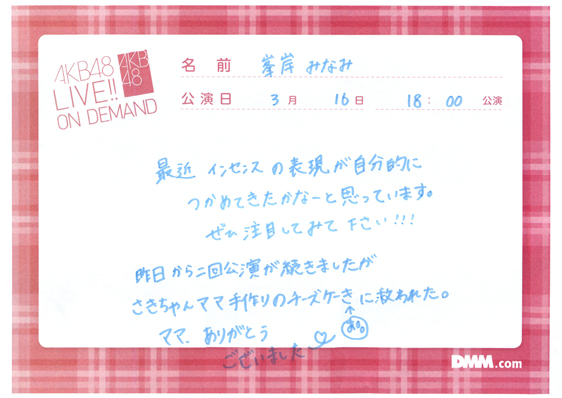 AKB48
LIVE!!
ON DEMAND
AKB
48
名前 峯岸 みなみ
公演日 3月 16日 18:00 公演
最近 インセンスの表現が自分的に
つかめてきたかなーと思っています。
ぜひ注目してみて下さい!!!
昨日から二回公演が続きましたが
さきちゃんママ手作りのチーズケーきに救われた。
ママ、ありがとう
ございました
DMM.com